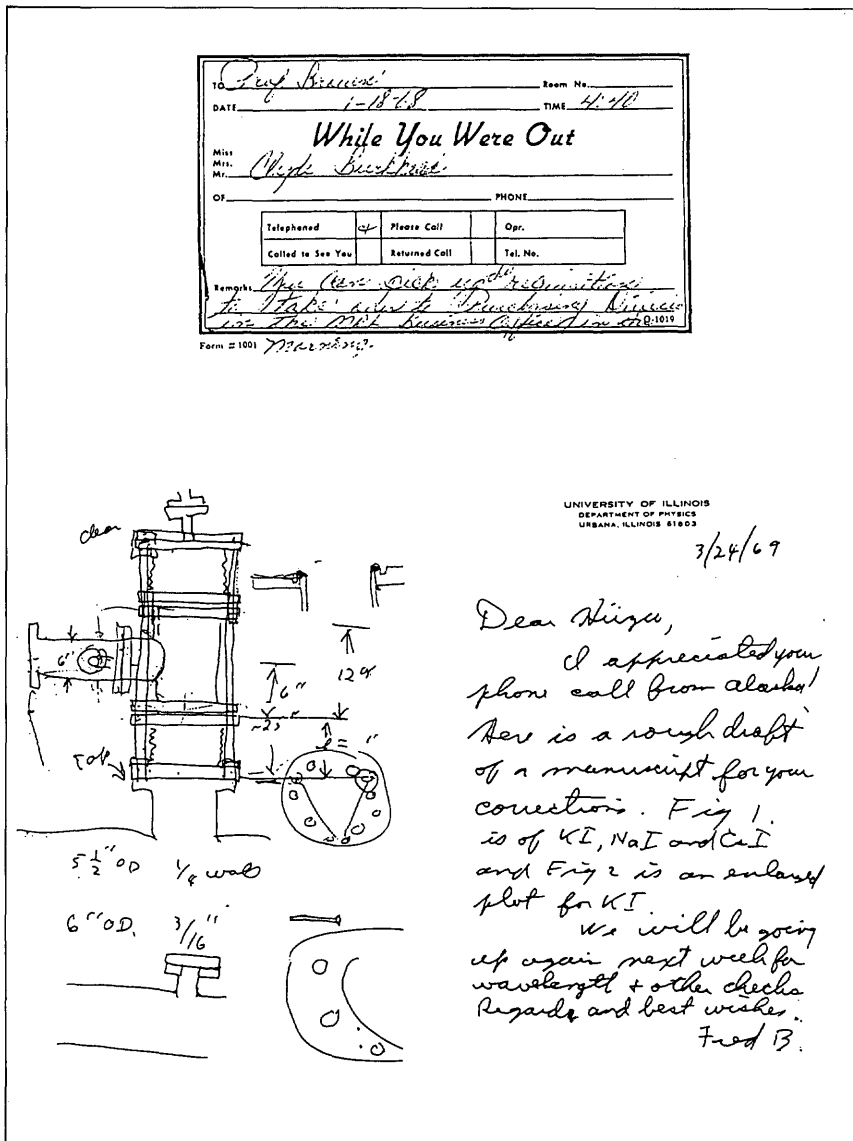 TO Prof Room No.
DATE 1-18-68 TIME 4:40
While You Were Out
Miss
Mrs.
Mr. Clyde
OF PHONE
Telephoned Please Call Opr.
Called to See You Returned Call Tel. No.
Remarks You can pick up the requisition
to take over to Purchasing Division
in the Business Office in the
D-1019
Form #1001 Morning.
UNIVERSITY OF ILLINOIS
DEPARTMENT OF PHYSICS
URBANA, ILLINOIS 61803
3/24/69
Dear
I appreciated your
phone call from Alaska!
Here is a rough draft
of a manuscript for your
corrections. Fig 1.
is of KI, NaI and CsI
and Fig 2 is an enlarged
plot for KI
We will be going
up again next week for
wavelength + other checks
Regards and best wishes.
Fred B.
clean
6"
6"
Top
5 1/2" OD 1/4 wall
6" OD. 3/16"